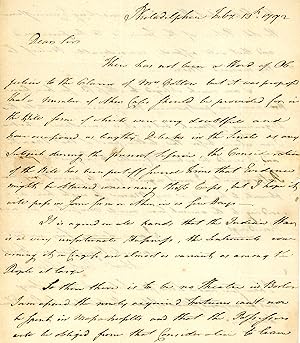 Philadelphia Feby 13th 1792
Dear Sir
There has not been a Word of Ob-
jection to the Claim of Mrs but it was proposed
that a number of other Cases should be provided for in
the Bill some of which were very doubtful and
have occasioned as lengthy Debates in the Senate as any
Subject during the present Session, the Consideration
of the Bill has been put off several times that Evidence
might be obtained concerning those Cases, but I hope it
will pass in some form or other in a few Days
It is agreed on all hands that the Indian War
is a very unfortunate Business, the Sentiments con-
cerning it in Congress are almost as various as among the
People at large
So then there is to be no Theatre in Boston
I am afraid the newly acquired fortunes cant now
be spent in and that the Possessors
will be obliged from that Consideration to leave